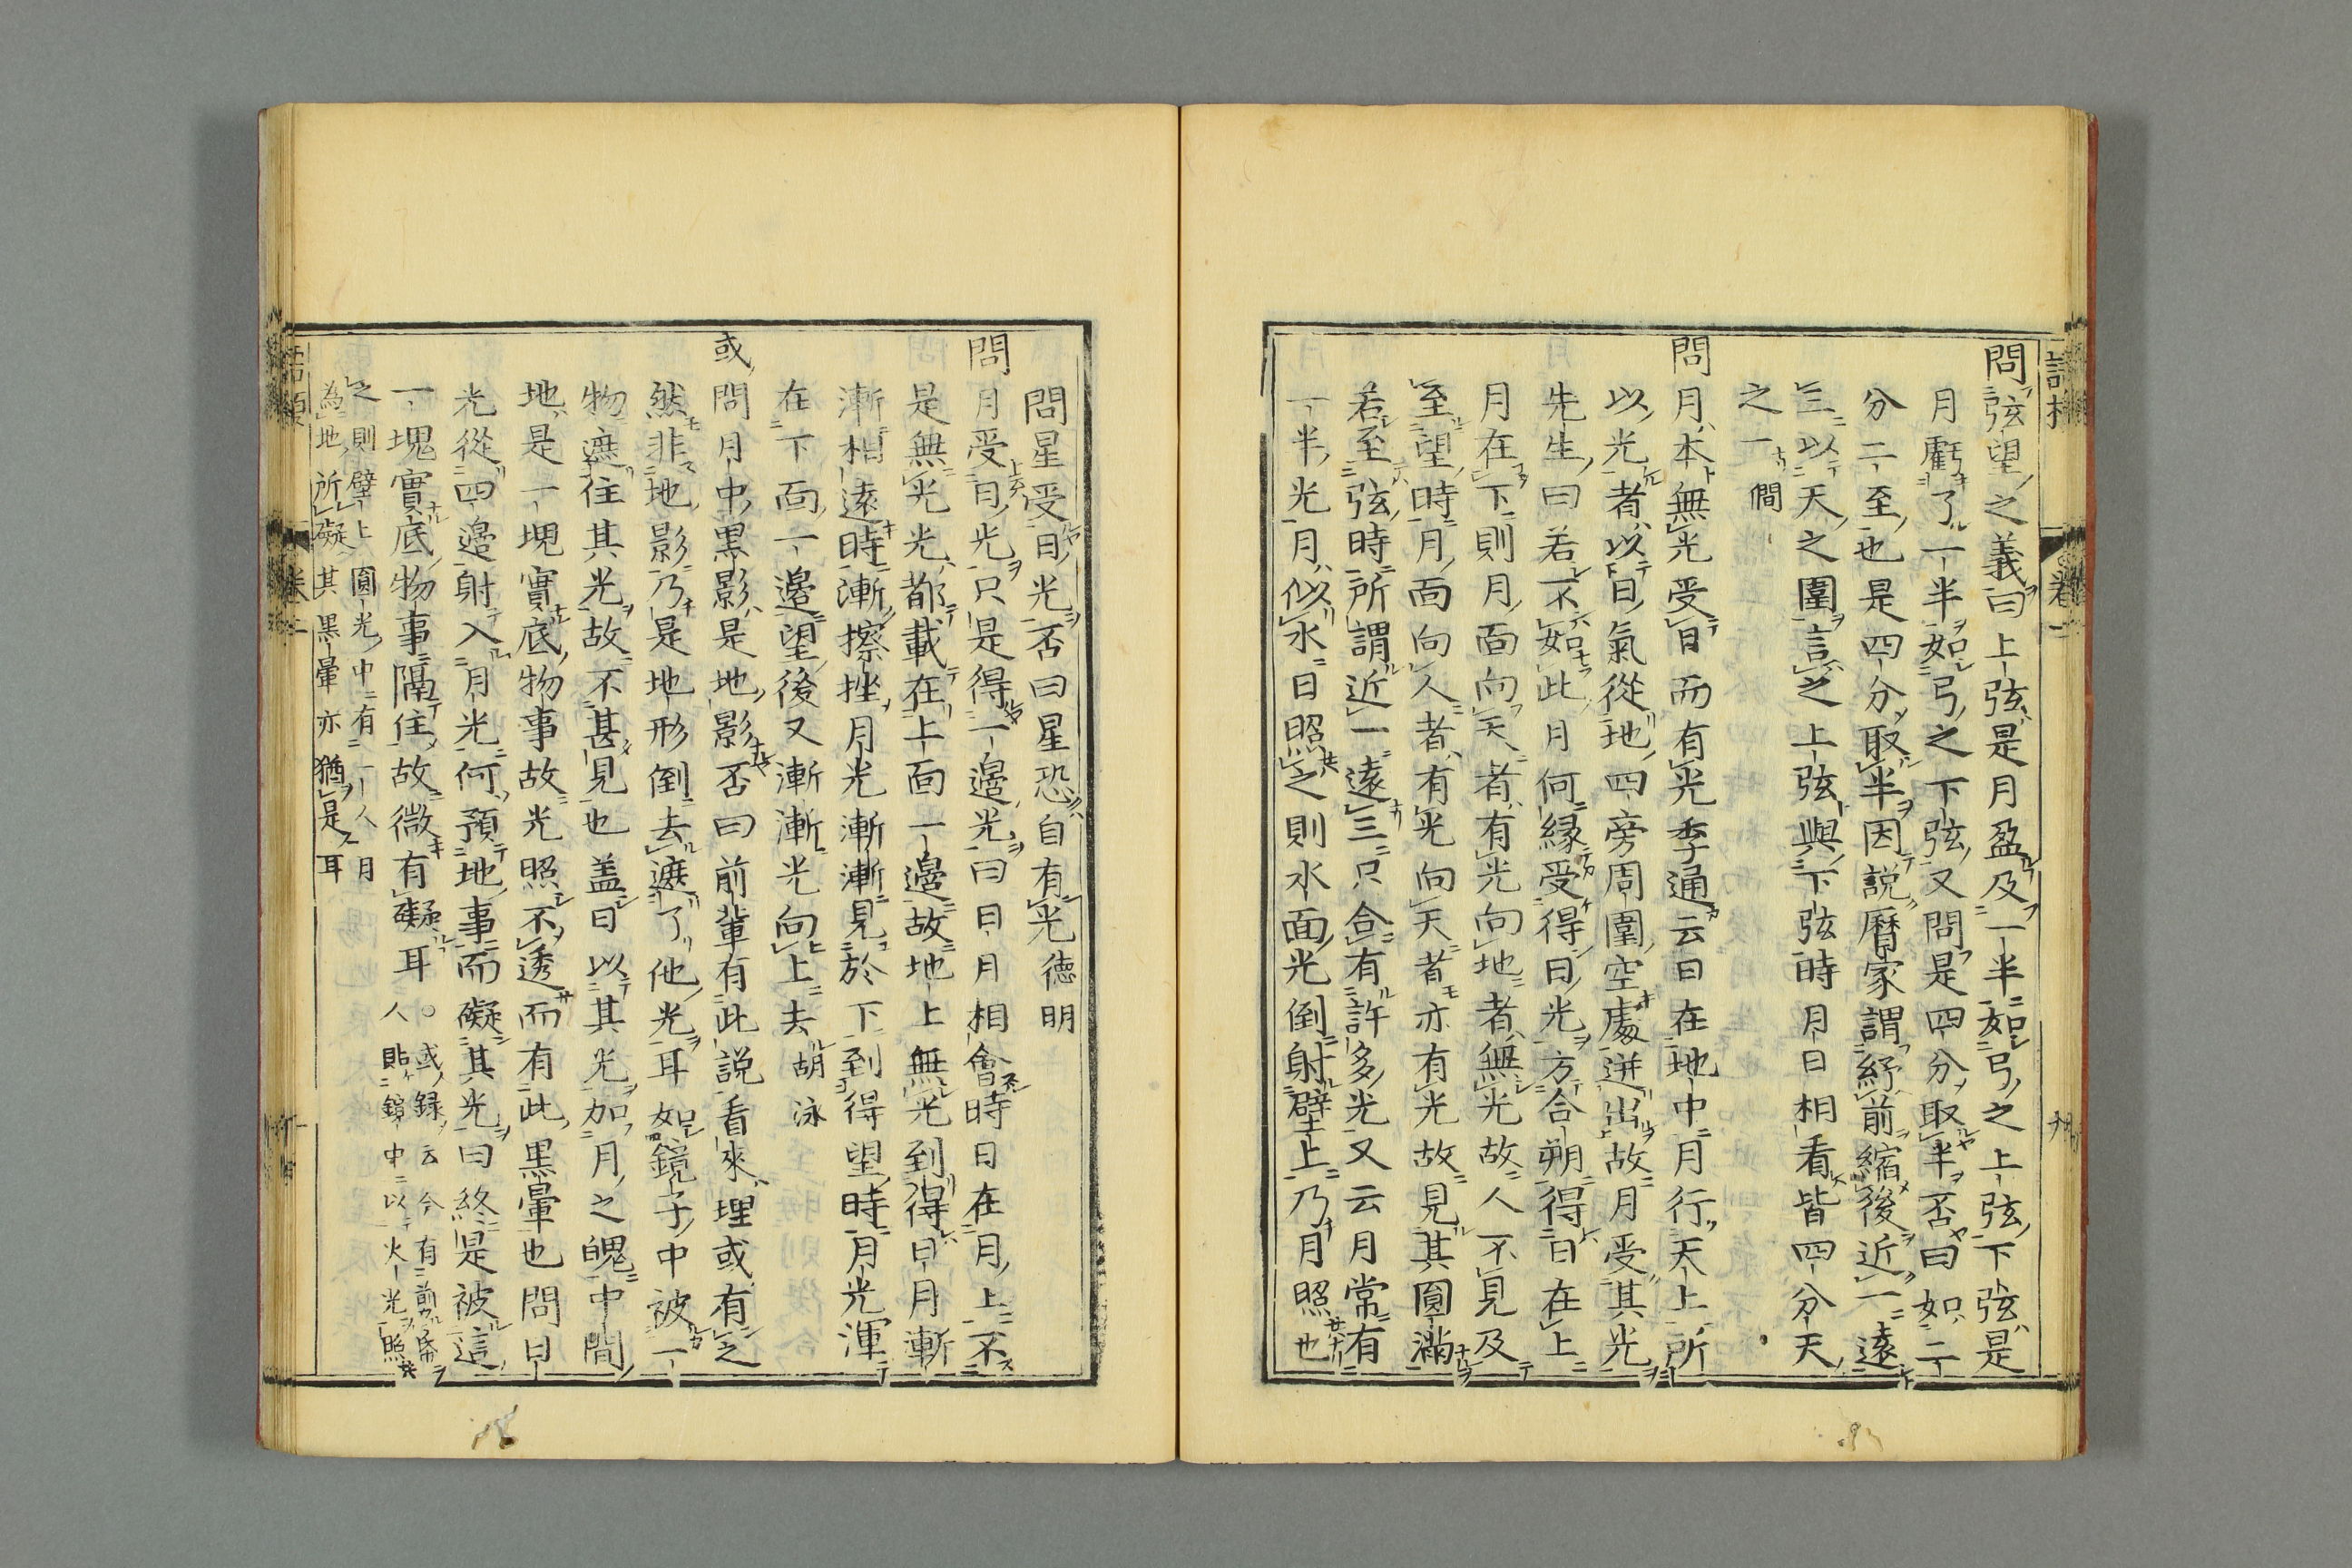 問弦望之義曰上弦是月盈及一半如弓之上弦下弦是
月虧了一半如弓之下弦又問是四分取半否曰如二
分二至也是四分取半因説曆家謂紓前縮後近一遠
三以天之圍言之上弦與下弦時月日相看皆四分天
之一 僩
問月本無光受日而有光季通云日在地中月行天上所
以光者以日氣從地四旁周圍空處迸出故月受其光
先生曰若不如此月何縁受得日光方合朔得日在上
月在下則月面向天者有光向地者無光故人不見及
至望時月面向人者有光向天者亦有光故見其圓滿
若至弦時所謂近一遠三只合有許多光又云月常有
一半光月似水日照之則水面光倒射壁上乃月照也
問星受日光否曰星恐自有光 德明
問月受日光只是得一邉光曰日月相會時日在月上不
是無光光都載在上面一邉故地上無光到得日月漸
漸相遠時漸擦挫月光漸漸見於下到得望時月光渾
在下面一邉望後又漸漸光向上去 胡泳
或問月中黒影是地影否曰前輩有此説看來理或有之
然非地影乃是地形倒去遮了他光耳如鏡子中被一
物遮住其光故不甚見也盖日以其光加月之魄中間
地是一塊實底物事故光照不透而有此黒暈也問日
光從四邉射入月光何預地事而礙其光曰終是被這
一塊實底物事隔住故微有礙耳 ○或録云今有剪帋
人貼鏡中以火光照
之則壁上圓光中有一人月
為地所礙其黒暈亦猶是耳